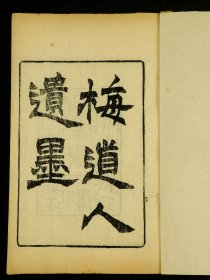 梅道人
遺墨